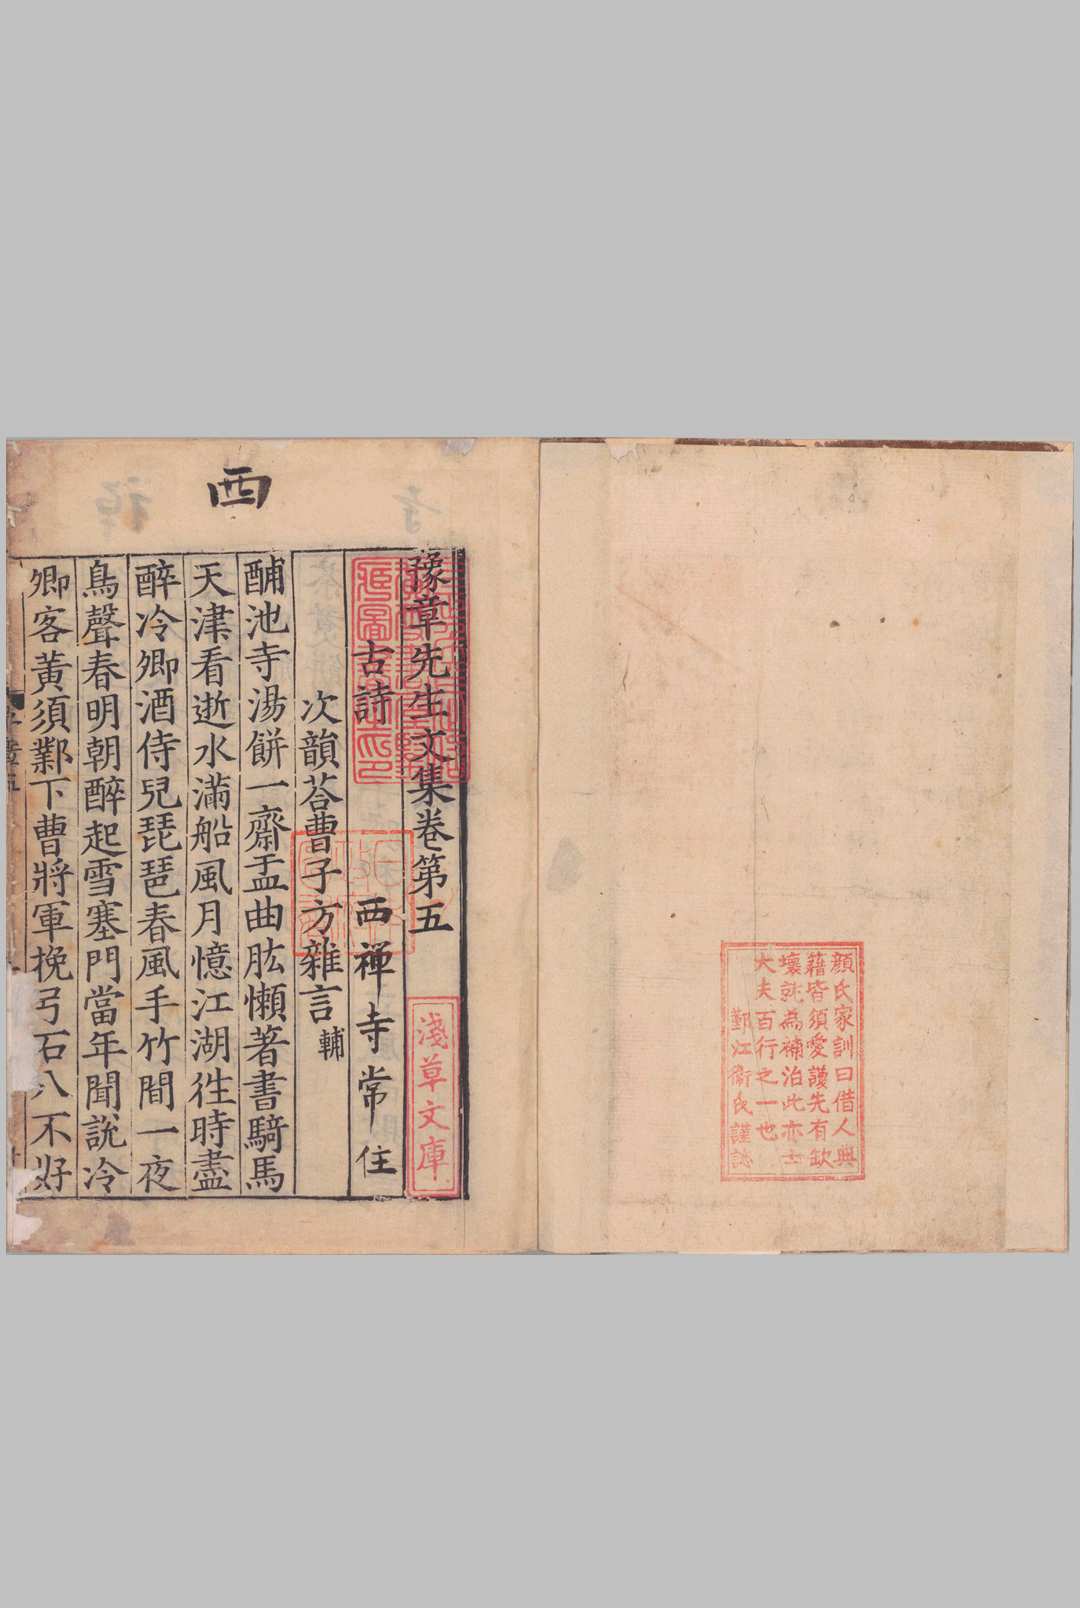 顔氏家訓曰借人典
籍皆須愛護先有缺
壞就為補治此亦士
大夫百行之一也
鄞江衞氏謹誌
西
豫章先生文集卷第五
淺草文庫
古詩
西禪寺常住
次韻荅曹子方雜言輔
酺池寺湯餅一齋盂曲肱懶著書騎馬
天津看逝水滿船風月憶江湖徃時盡
醉冷卿酒侍兒琵琶春風手竹間一夜
鳥聲春明朝醉起雪塞門當年聞說冷
卿客黃須鄴下曹將軍挽弓石八不好